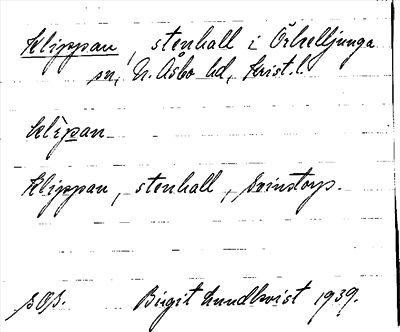 Klippan, stenhall i Örkelljunga
sn, N. Åsbo hd, Krist. l.
klìpan
Klippan, stenhall, Svinstorp.
SOp. Birgit Lundkvist 1939.